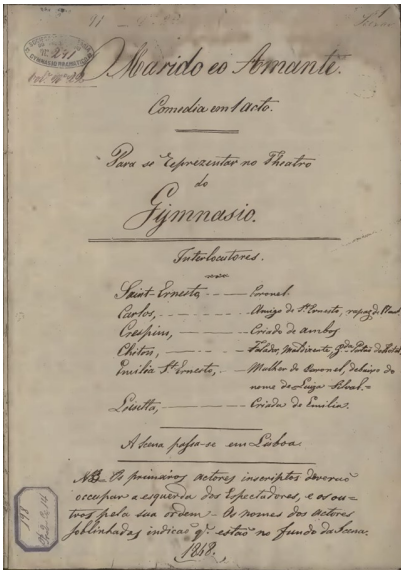 Nº 291
Marido e o Amante.
Comedia em 1 acto.
Para se reprezentar no Theatro
do
Gymnasio.
Interlocutores.
Saint-Ernesto, - - - Coronel.
Carlos, - - - Amigo de St. Ernesto, rapaz de
Crespim, - - - Criado de ambos
Chiton, - - - Falador, Maldizente,
Emilia St. Ernesto, - - Mulher do Coronel, debaixo do
nome de Luiza
Lisetta, - - - Criada de Emilia.
A Scena passa-se em Lisboa.
NB - Os primeiros actores inscriptos deverão
occupar a esquerda dos Espectadores, e os ou-
tros pela sua ordem - Os nomes dos actores
sublinhados indicão q. estão no fundo da Scena.
1848.
198